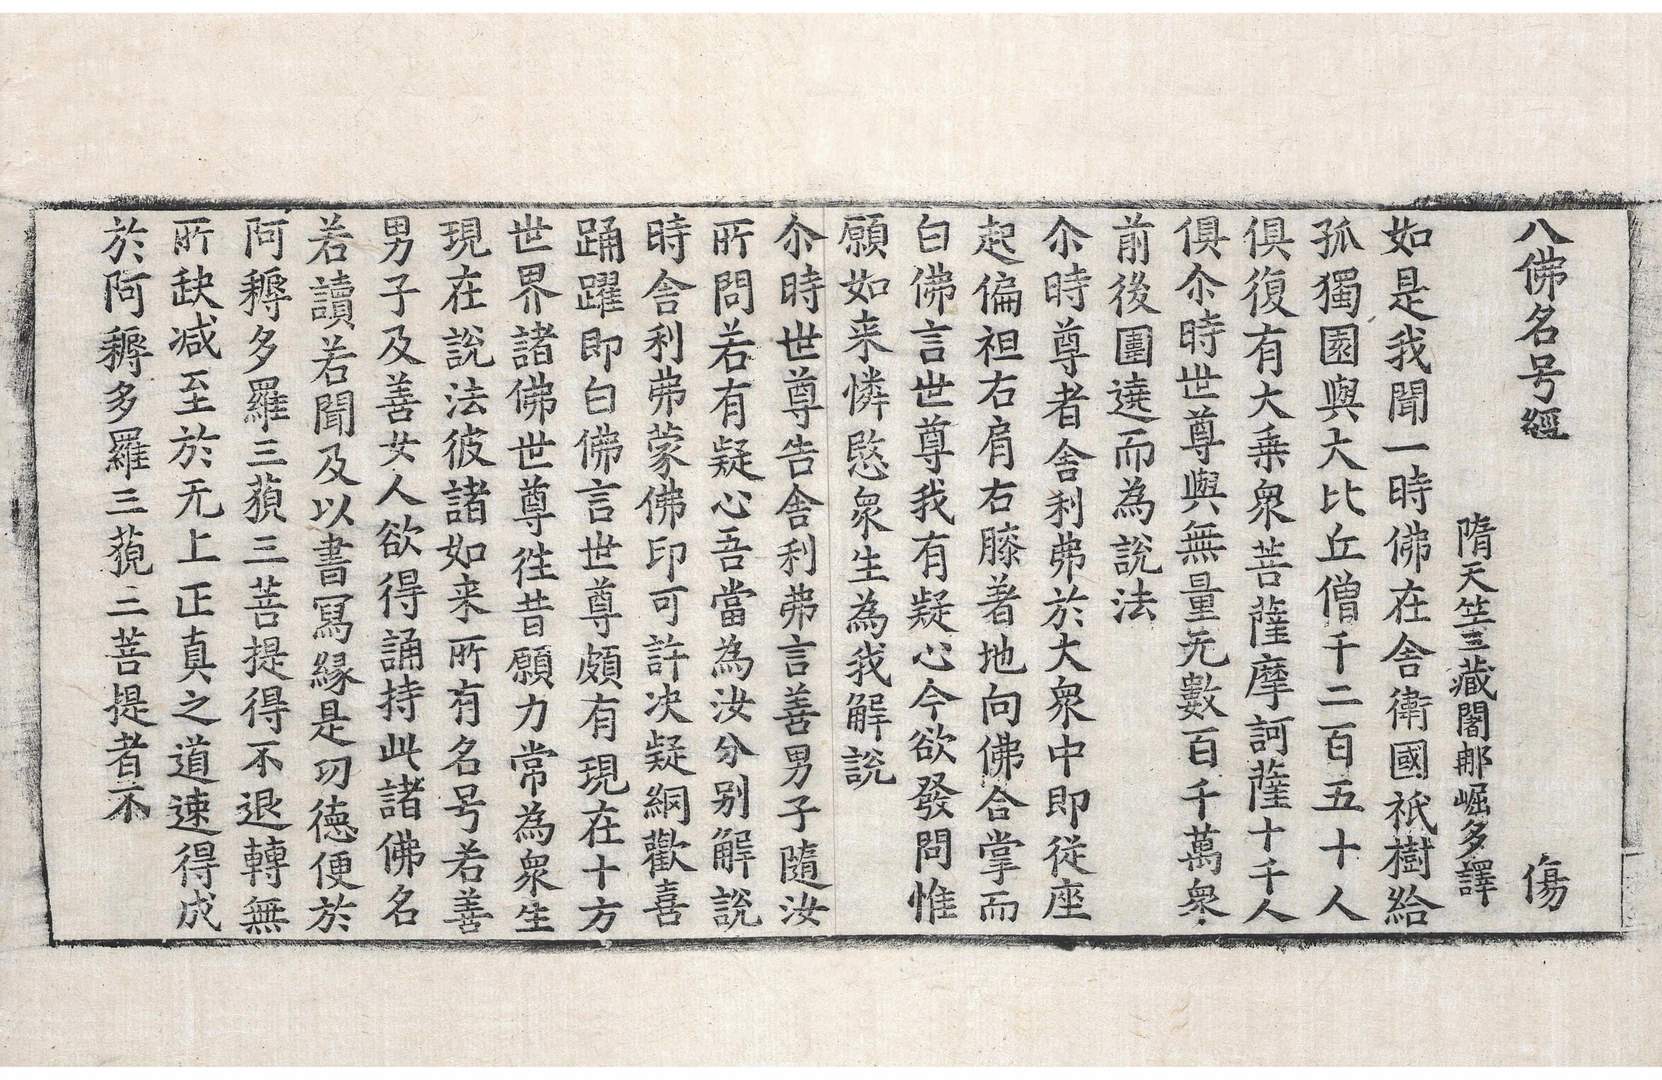 八佛名号經　傷
隋天竺三藏闍那崛多譯
如是我聞一時佛在舍衛國祇樹給
孤獨園與大比丘僧千二百五十人
俱復有大乘衆菩薩摩訶薩十千人
俱尒時世尊與無量无數百千萬衆
前後圍遶而為說法
尒時尊者舍利弗於大衆中即從座
起偏袒右肩右膝著地向佛合掌而
白佛言世尊我有疑心今欲發問惟
願如来憐愍衆生為我解說
尒時世尊告舍利弗言善男子隨汝
所問若有疑心吾當為汝分別解說
時舍利弗蒙佛印可許决疑網歡喜
踊躍即白佛言世尊頗有現在十方
世界諸佛世尊徃昔願力常為衆生
現在說法彼諸如来所有名号若善
男子及善女人欲得誦持此諸佛名
若讀若聞及以書寫緣是功德便於
阿耨多羅三藐三菩提得不退轉無
所缺减至於无上正真之道速得成
於阿耨多羅三藐三菩提者不